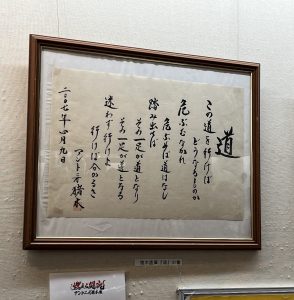 道
この道を行けば
どうなるものか
危ぶむなかれ
危ぶめば道はなし
踏み出せば
その一足が道となり
その一足が道となる
迷わず行けよ
行けば分かるさ
アントニオ猪木
二〇〇七年四月九日
燃える闘魂
アントニオ猪木